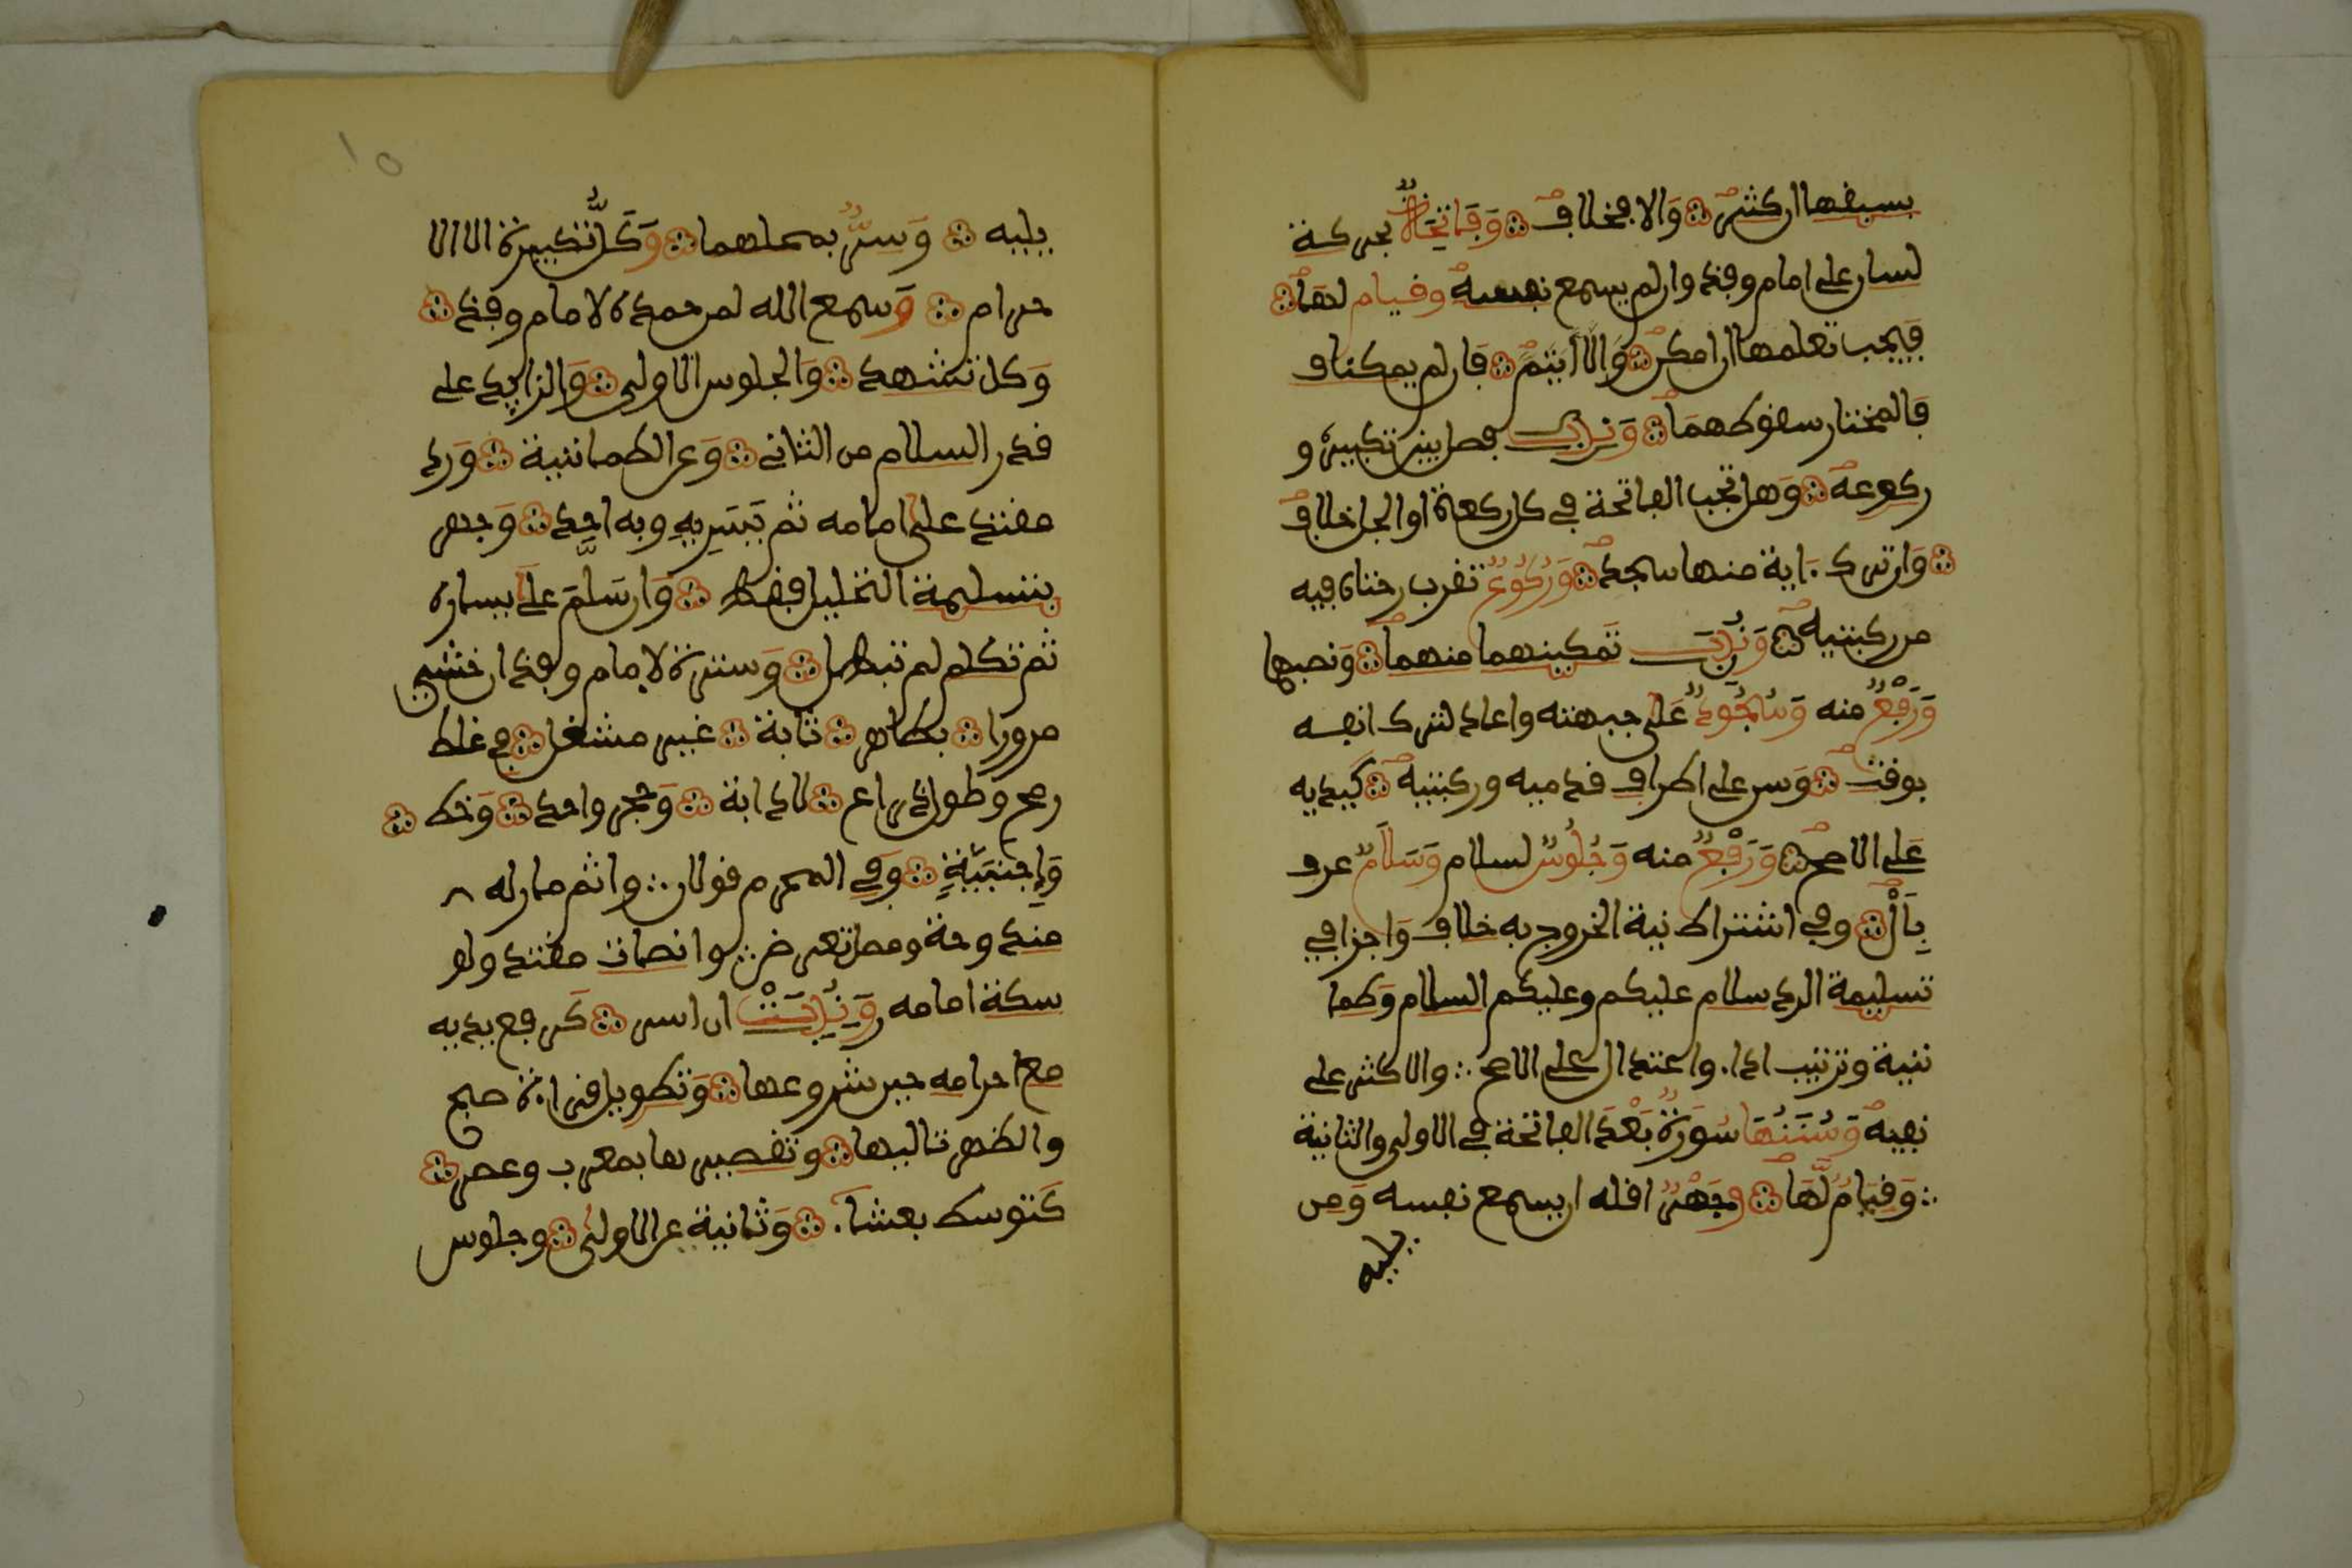 بسبقها ان كثر وَالا فخلاف وَفَاتحَةٌ بحركة
لسان على امام وفذ وان لم يسمع نفسه وقيام لها
فيجب تعلمها ان امكن وَالا ايتمَّ فان لم يمكنا ف
فالمختار سقوطهما وَنُدِبَ فصل بين تكبيره و
ركوعه وَهل تجب الفاتحة في كل ركعة او الجل خلاف
وَان ترك ءاية منها سجد وَرُكُوعٌ تقرب راحتاه فيه
من ركبتيه وَنُدِبَ تمكينهما منهما وَنصبها
وَرَفْعٌ منه وَسُجُودٌ عَلى جبهته واعاد لترك انفه
بوقت وَسن على اطراف قدميه وركبتيه كَيديه
عَلى الاصح وَرَفْعٌ منه وَجُلُوسٌ لسلام وَسَلَامٌ عرف
بِأَلْ وفي اشتراط نية الخروج به خلاف وَاجزا في
تسليمة الرد سلام عليكم وعليكم السلام وَطما
نينة وترتيب ادا. واعتدال على الاصح والاكثر على
نفيه وَسُنَنُهَا سُورَةٌ بَعْدَ الفاتحة في الاولى والثانية
وَقيَامٌ لَّهَا وجَهْرٌ اقله ان يسمع نفسه وَمن
يليه
١٥
يليه وَسِرٌّ بمحلهما وَكلُّ تكبيرة الا الا
حرام وَسمع الله لمن حمده لامام وفذ
وَكل تشهد وَالجلوس الاولى وَالزايد على
قدر السلام من الثاني وَعلى الطمانينة وَرد
مقتد على امامه ثم يَسَارِهِ وبه احد وَجهر
بتسليمة التحليل فقط وَان سَلَّمَ علَى يساره
ثم تكلم لم تبطل وَسترة لامام وفذ ان خشي
مرورا بطاهر ثابة غير مشغل في غلظ
رمح وطول ذراع لا دابة وَحجر واحد وَخط
وَاجنبيَّةٍ وَفي المحرم قولان واثم مار له
مندوحة ومصل تعرض وانصات مقتد ولو
سكت امامه وَنُدِبَتْ ان اسر كَرفع يديه
مع احرامه حين شروعها وَتطويل قراءة صبح
والظهر تاليها وتقصيرها بمغرب وعصر
كَتوسط بعشاء. وَثانية عن الاولى وجلوس